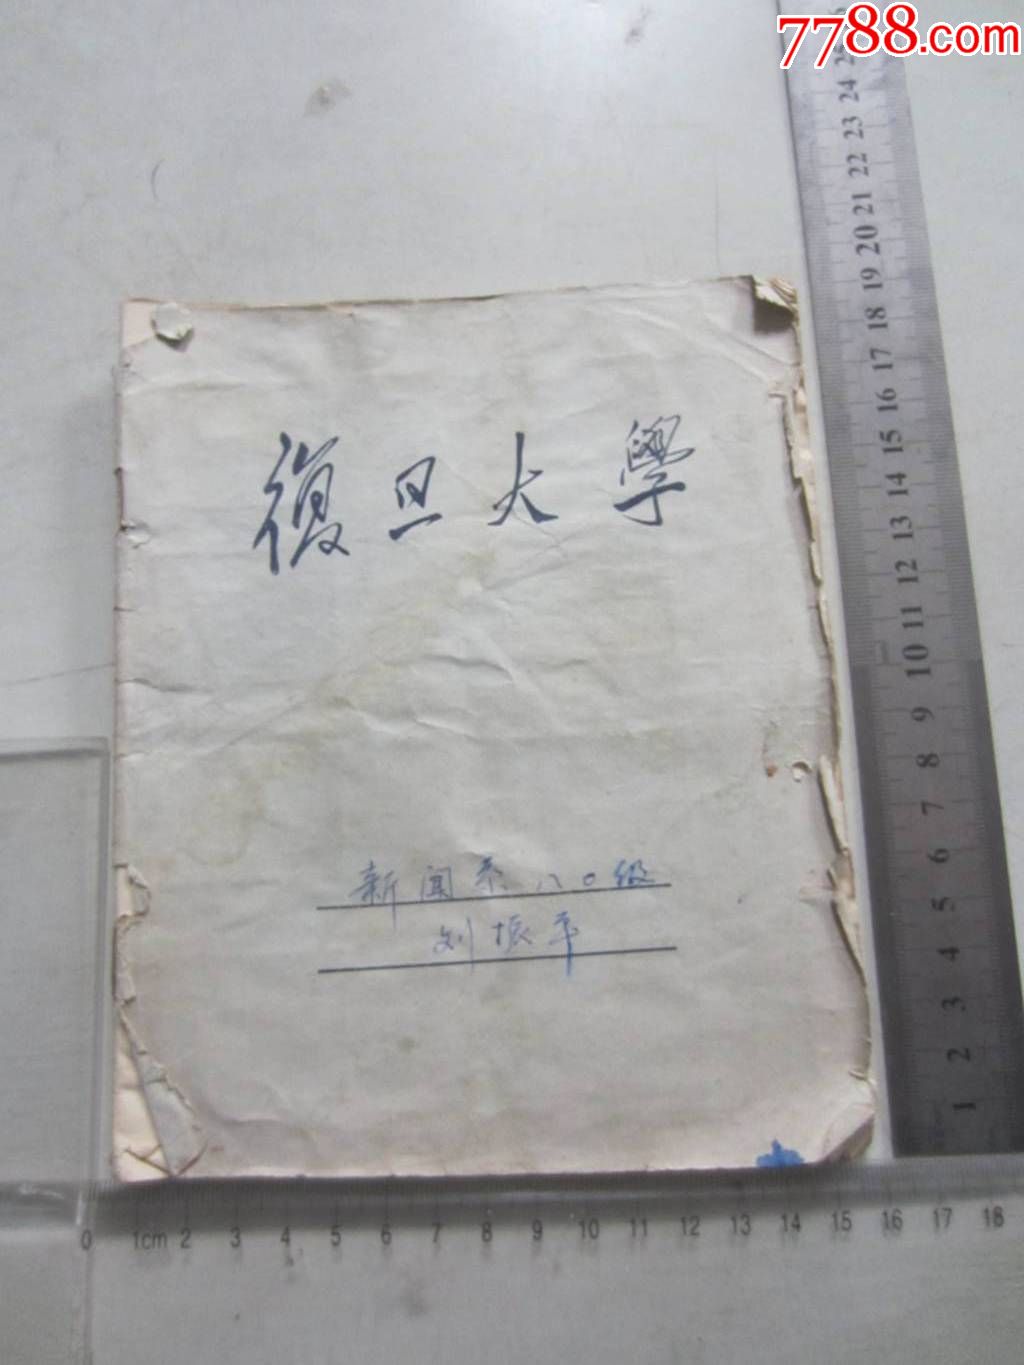 7788.com
復旦大學
新闻系八〇级
刘振平
25
24
23
22
21
20
19
18
17
16
15
14
13
12
11
10
9
8
7
6
5
4
3
2
1
0 1cm 2 3 4 5 6 7 8 9 10 11 12 13 14 15 16 17 18